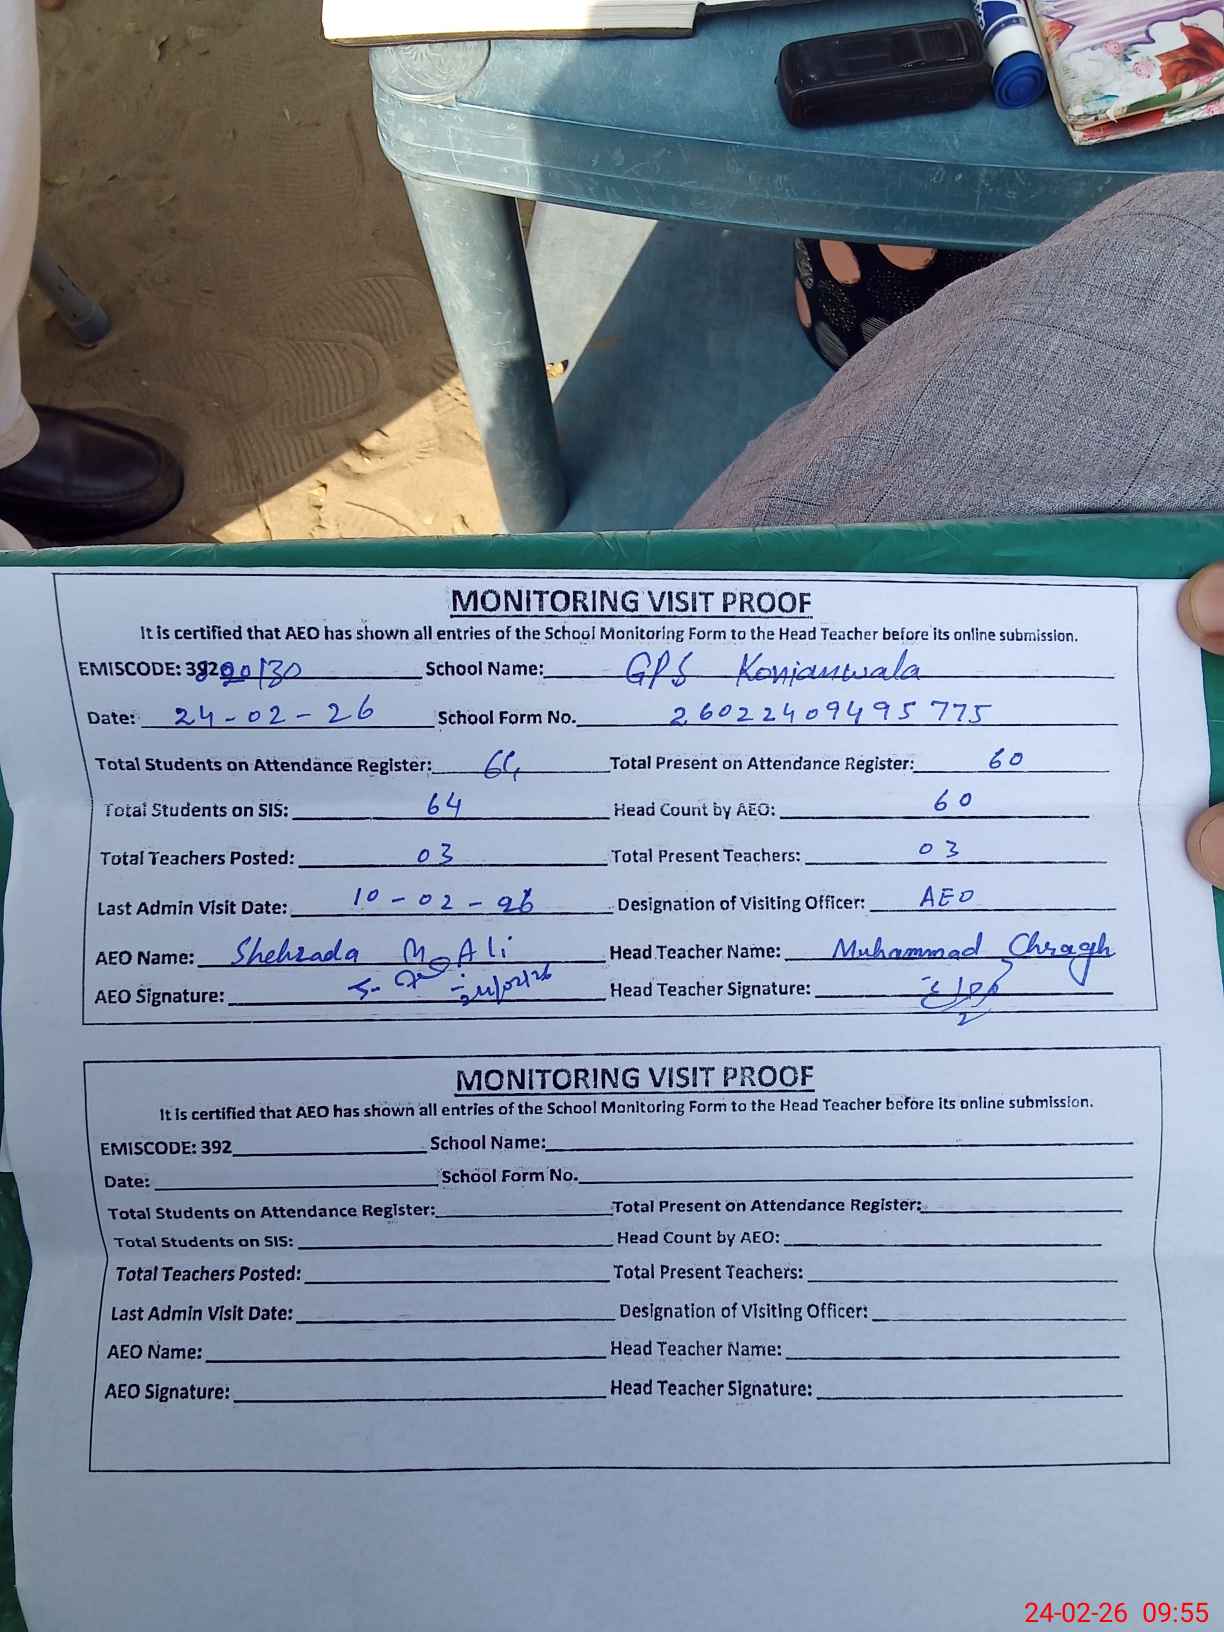 MONITORING VISIT PROOF
It is certified that AEO has shown all entries of the School Monitoring Form to the Head Teacher before its online submission.
EMISCODE: School Name: GPS Konianwala
Date: 24-02-26 School Form No. 26022409495775
Total Students on Attendance Register: 64 Total Present on Attendance Register: 60
Total Students on SIS: 64 Head Count by AEO: 60
Total Teachers Posted: 03 Total Present Teachers: 03
Last Admin Visit Date: 10-02-26 Designation of Visiting Officer: AEO
AEO Name: Shehzada M. Ali Head Teacher Name: Muhammad Chragh
AEO Signature: 24/02/26 Head Teacher Signature:
MONITORING VISIT PROOF
It is certified that AEO has shown all entries of the School Monitoring Form to the Head Teacher before its online submission.
EMISCODE: 392 School Name:
Date: School Form No.
Total Students on Attendance Register: Total Present on Attendance Register:
Total Students on SIS: Head Count by AEO:
Total Teachers Posted: Total Present Teachers:
Last Admin Visit Date: Designation of Visiting Officer:
AEO Name: Head Teacher Name:
AEO Signature: Head Teacher Signature:
24-02-26 09:55